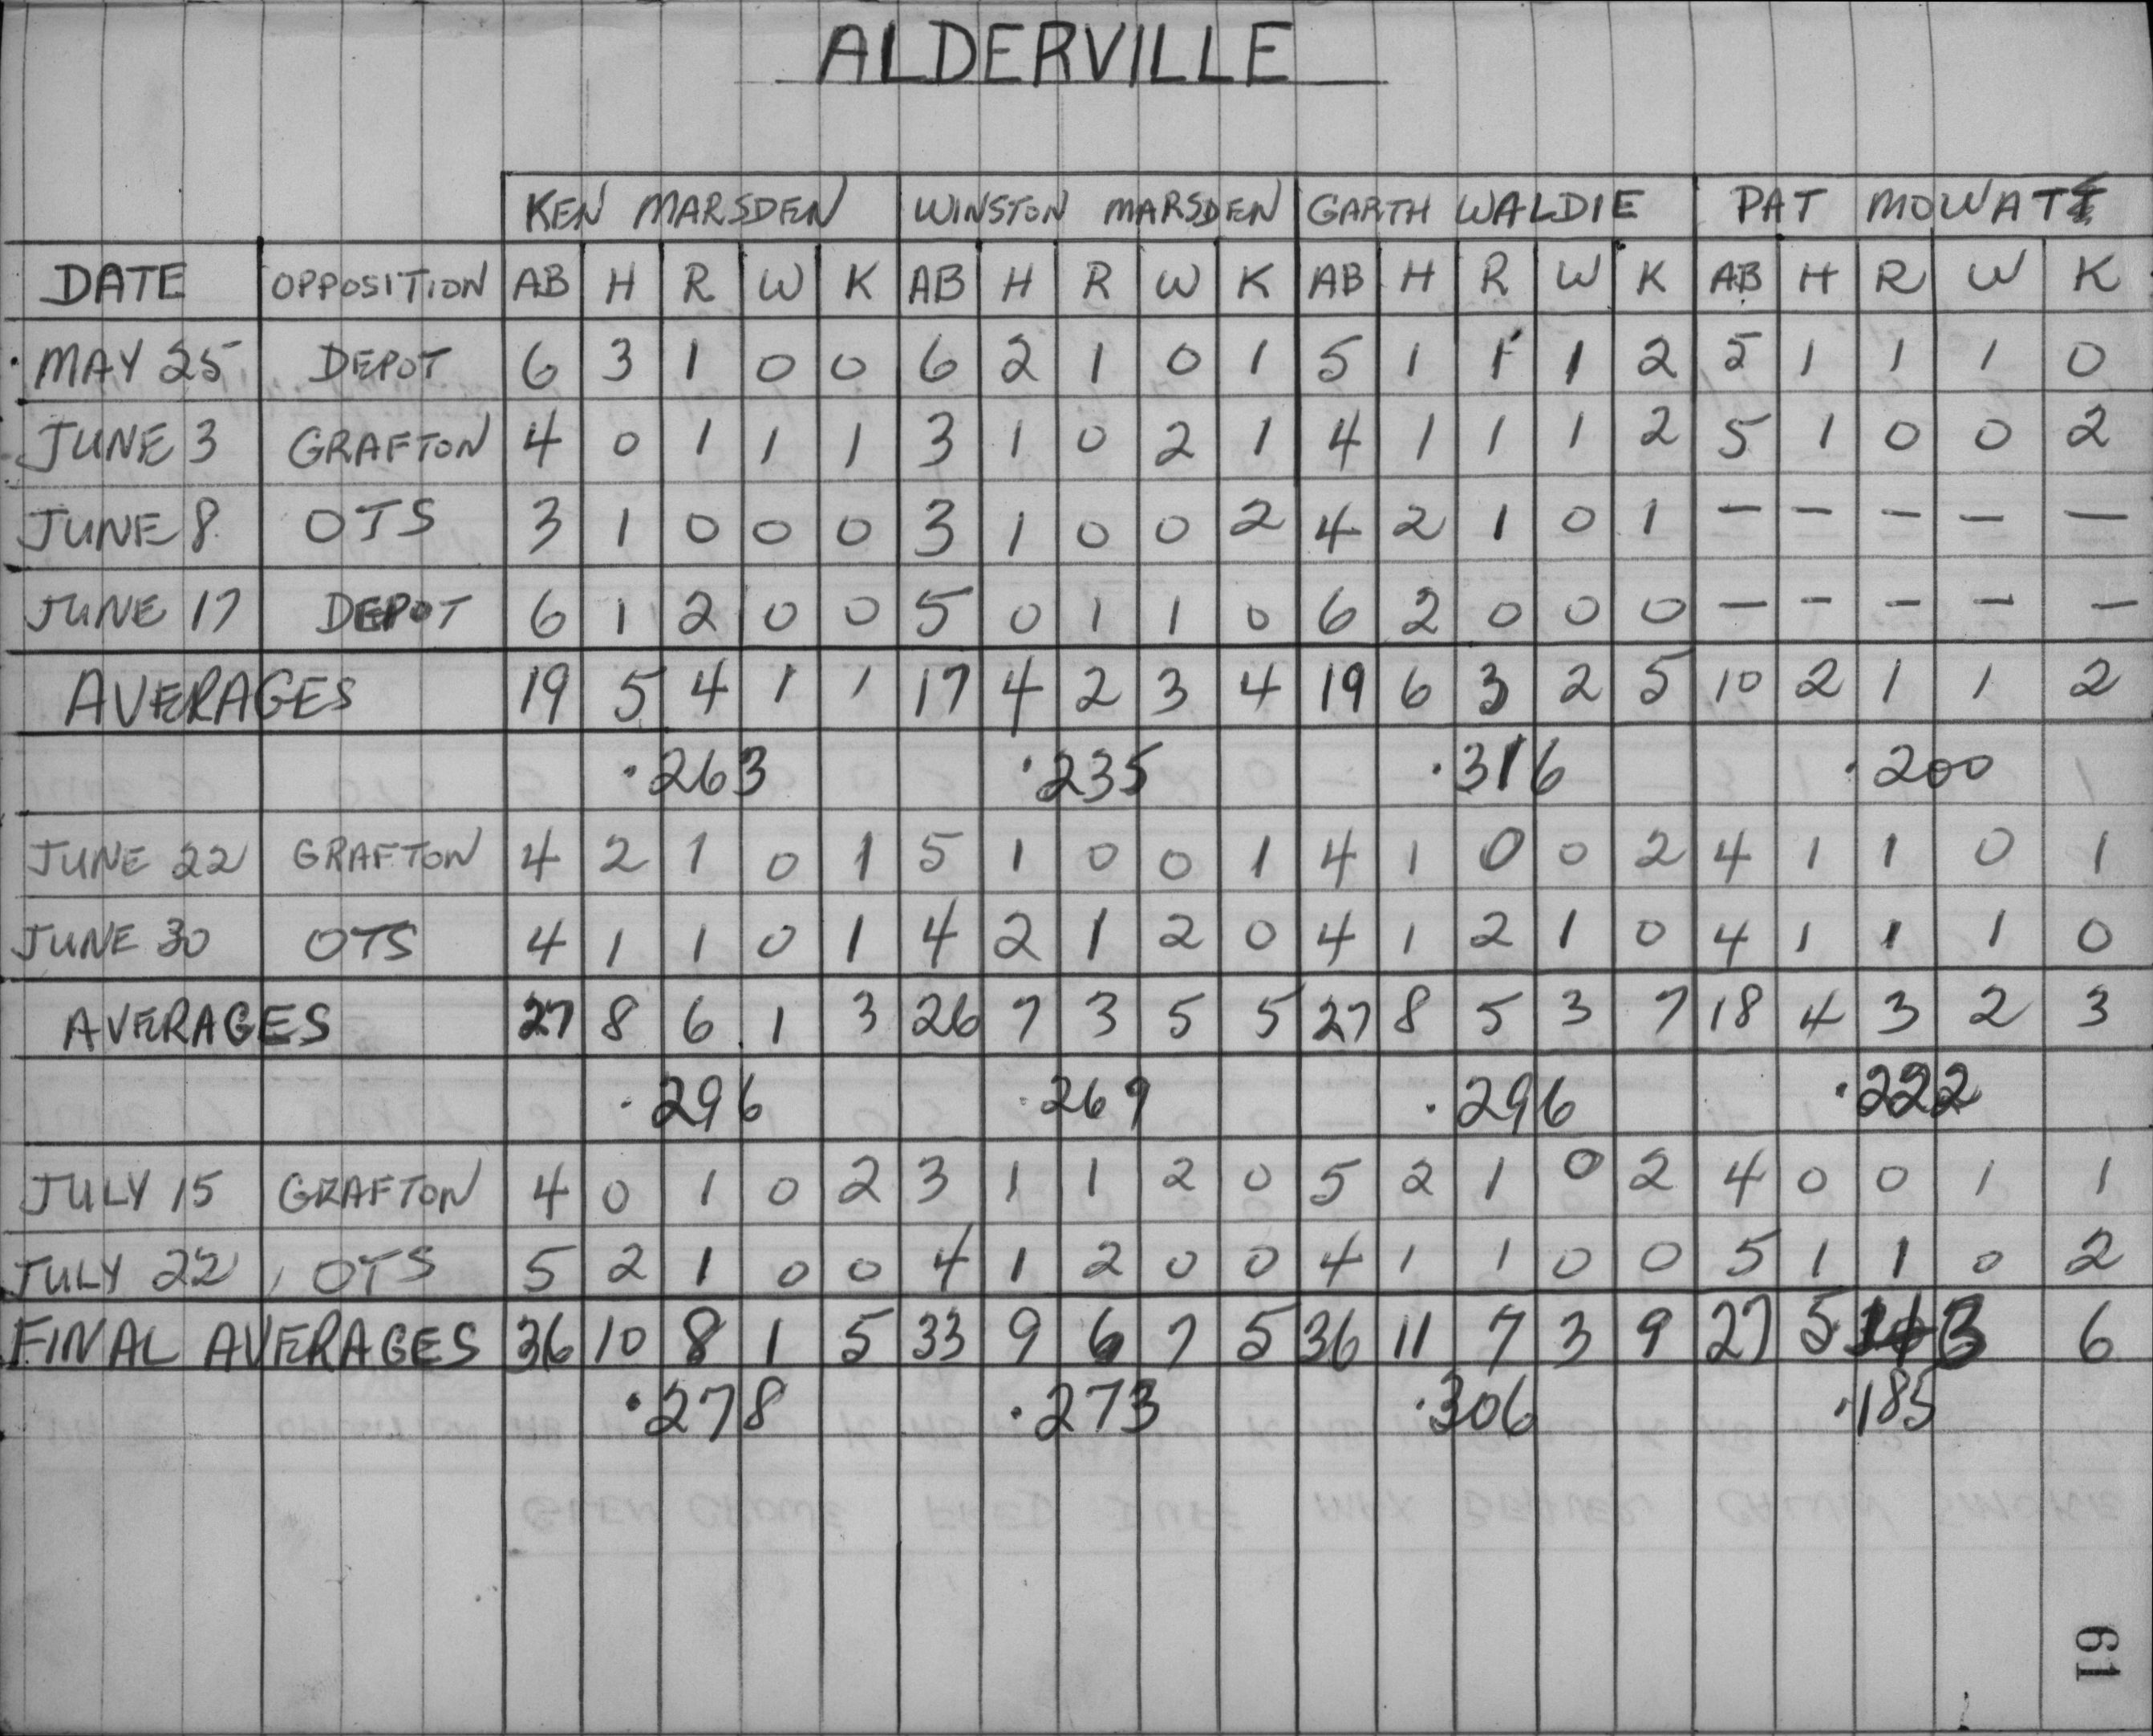 ALDERVILLE
KEN MARSDEN WINSTON MARSDEN GARTH WALDIE PAT MOWAT
DATE OPPOSITION AB H R W K AB H R W K AB H R W K AB H R W K
MAY 25 DEPOT 6 3 1 0 0 6 2 1 0 1 5 1 1 1 2 5 1 1 1 0
JUNE 3 GRAFTON 4 0 1 1 1 3 1 0 2 1 4 1 1 1 2 5 1 0 0 2
JUNE 8 OTS 3 1 0 0 0 3 1 0 0 2 4 2 1 0 1 — — — — —
JUNE 17 DEPOT 6 1 2 0 0 5 0 1 1 0 6 2 0 0 0 — — — — —
AVERAGES 19 5 4 1 1 17 4 2 3 4 19 6 3 2 5 10 2 1 1 2
.263 .235 .316 .200
JUNE 22 GRAFTON 4 2 1 0 1 5 1 0 0 1 4 1 0 0 2 4 1 1 0 1
JUNE 30 OTS 4 1 1 0 1 4 2 1 2 0 4 1 2 1 0 4 1 1 1 0
AVERAGES 27 8 6 1 3 26 7 3 5 5 27 8 5 3 7 18 4 3 2 3
.296 .269 .296 .222
JULY 15 GRAFTON 4 0 1 0 2 3 1 1 2 0 5 2 1 0 2 4 0 0 1 1
JULY 22 OTS 5 2 1 0 0 4 1 2 0 0 4 1 1 0 0 5 1 1 0 2
FINAL AVERAGES 36 10 8 1 5 33 9 6 7 5 36 11 7 3 9 27 5 3 6
.278 .273 .306 .185
61